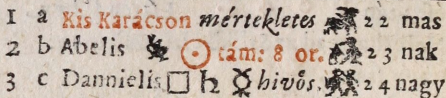 1 a Kis Karácson mértekletes 22 mas
2 b Abelis ☉ tám: 8 or. 23 nak
3 c Dannielis □ ♄ ☿ hivôs. 24 nagy